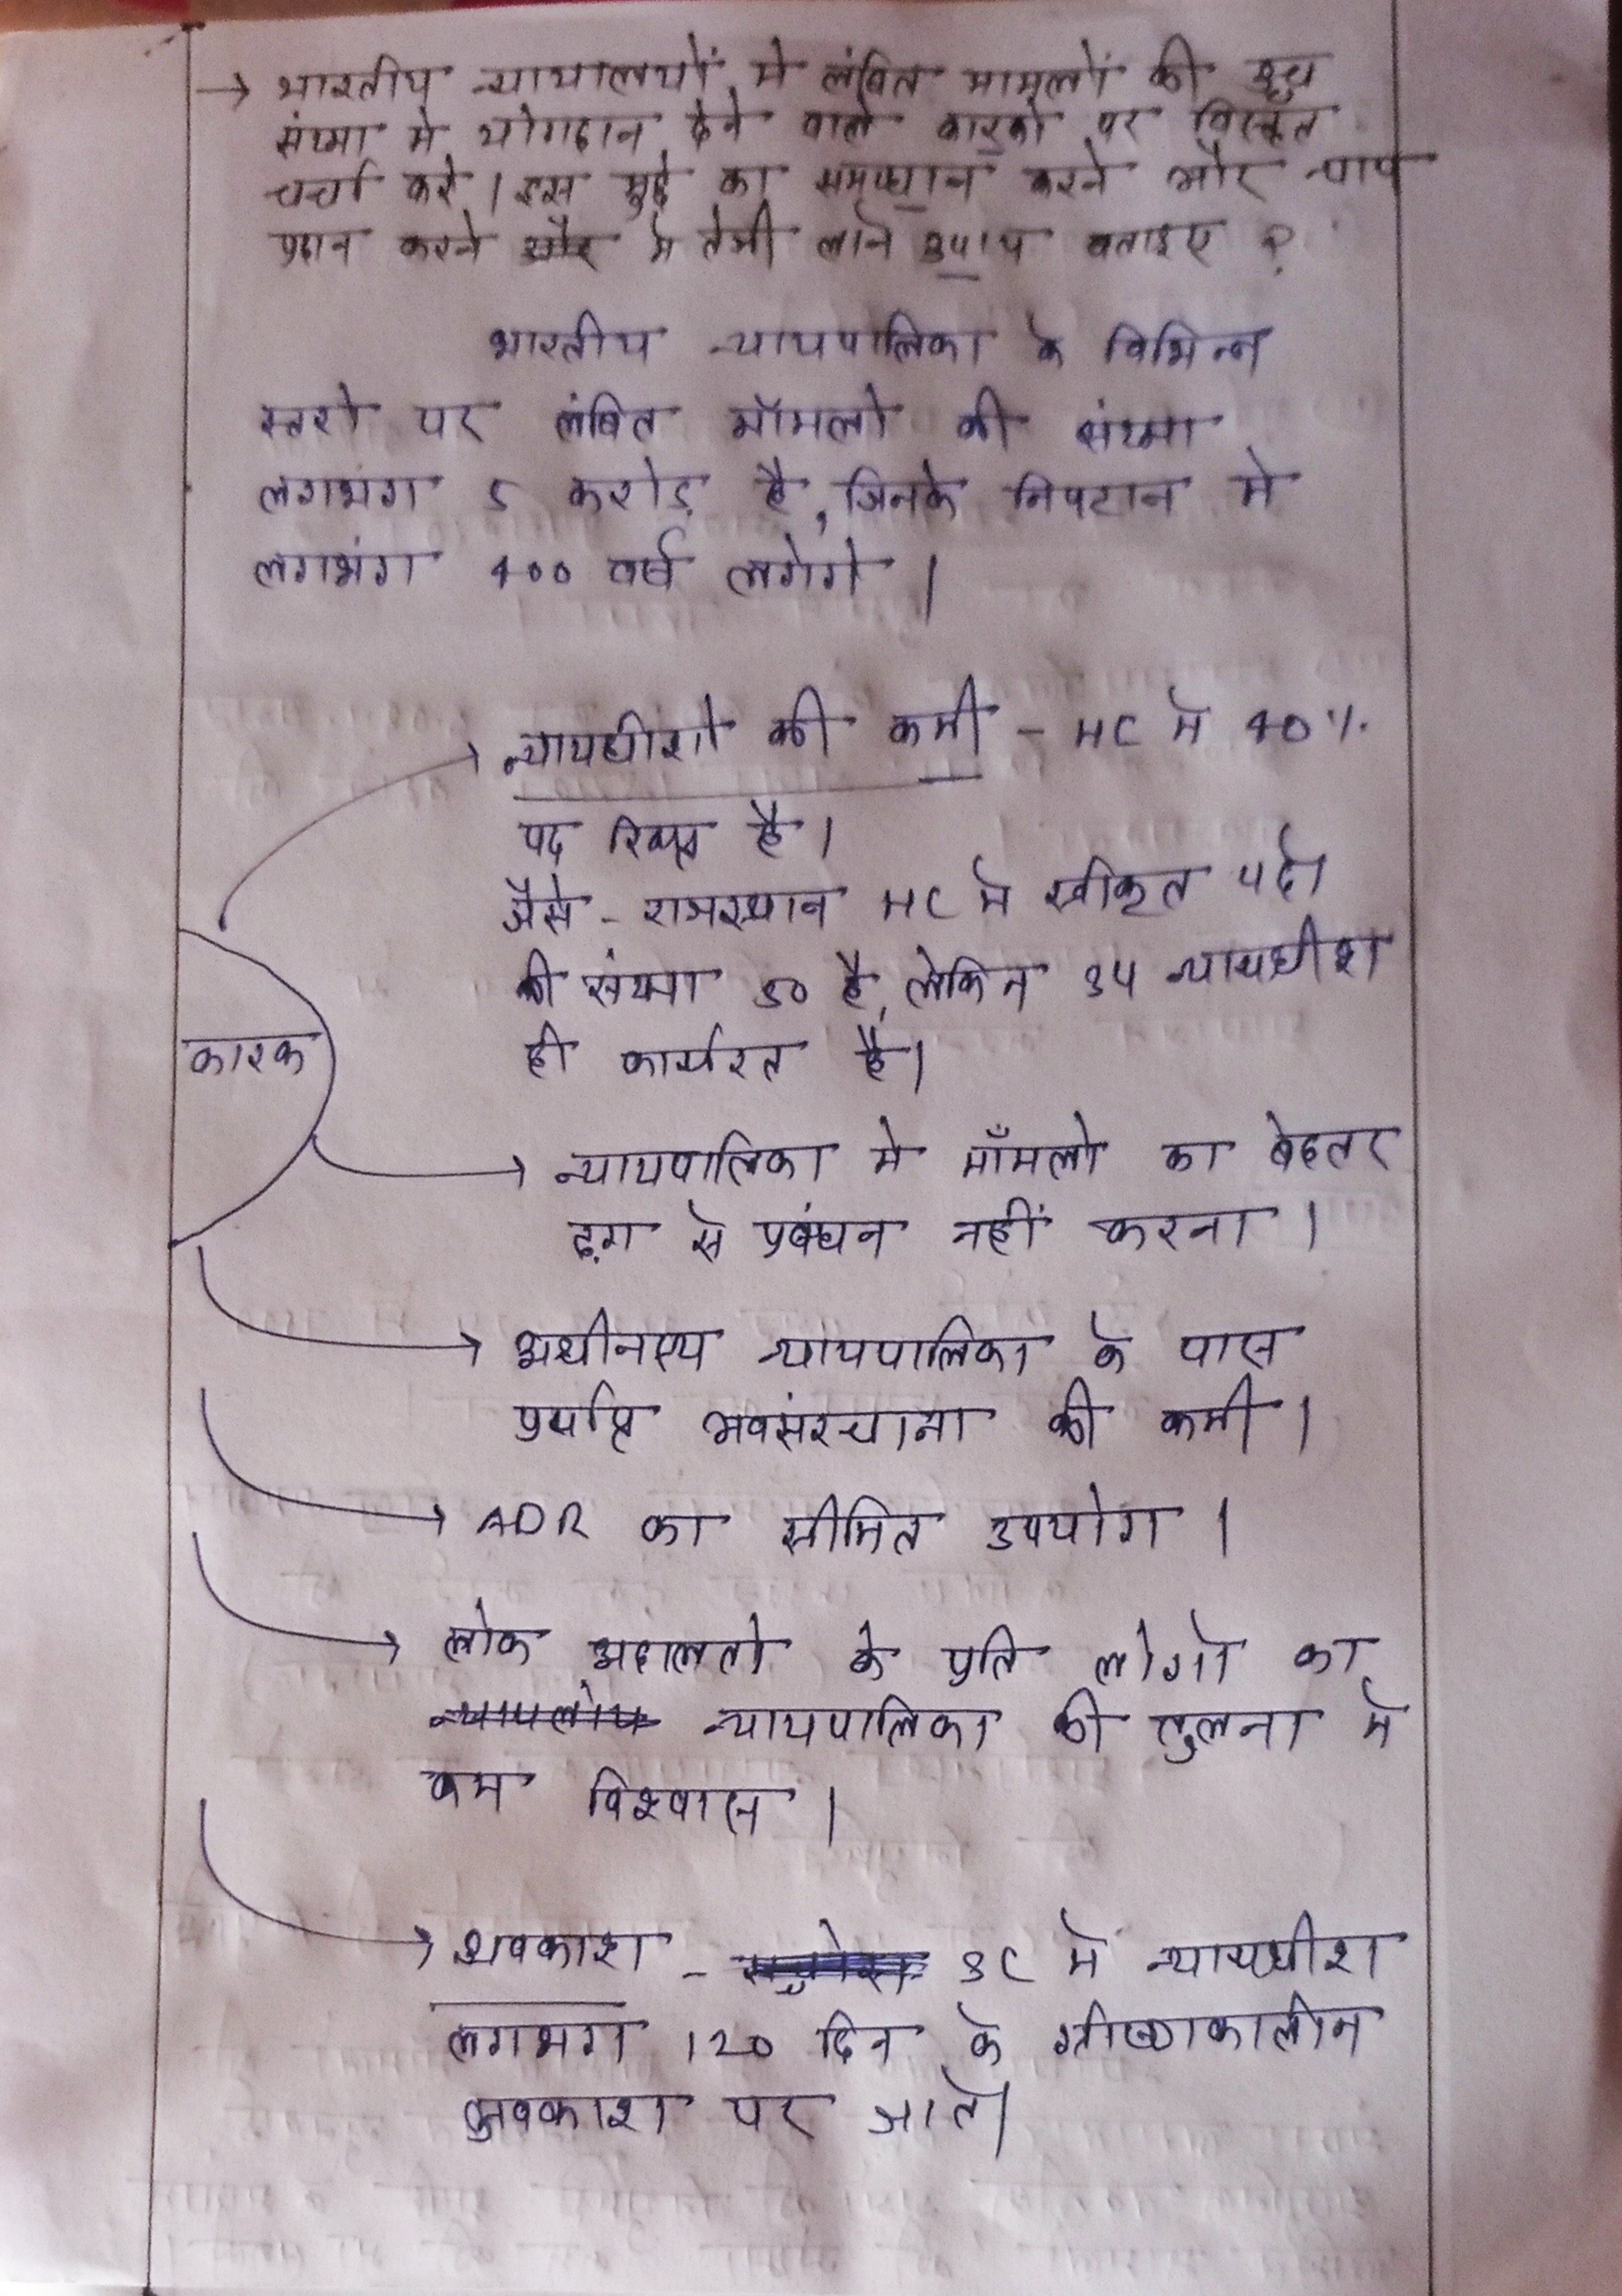 → भारतीय न्यायालयों मे लंबित मामलों की उच्च
संख्या मे योगदान देने वाले कारको पर विस्तृत
चर्चा करे । इस मुद्दे का समाधान करने और न्याय
प्रदान करने और मे तेजी लाने उपाय बताइए ?
भारतीय न्यायपालिका के विभिन्न
स्तरो पर लंबित मॉमलो की संख्या
लगभंग 5 करोड़ है, जिनके निपटान मे
लगभंग 400 वर्ष लगेगे ।
→ न्यायधीशो की कमी - HC मे 40%
पद रिक्त है ।
जैसे - राजस्थान HC मे स्वीकृत पदो
की संख्या 50 है, लेकिन 34 न्यायधीश
ही कार्यरत है ।
कारक
→ न्यायपालिका मे मॉंमलो का बेहतर
ढ़ग से प्रबंधन नहीं करना ।
→ अधीनस्थ न्यायपालिका के पास
पर्याप्त अवसंरचाना की कमी ।
→ ADR का सीमित उपयोग ।
→ लोक अदालतो के प्रति लोगो का
न्यायपालिका की तुलना मे
कम विश्वास ।
→ अवकाश - SC मे न्यायधीश
लगभग 120 दिन के ग्रीष्मकालीन
अवकाश पर जाते ।